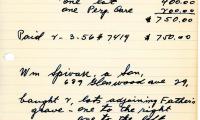 one Lot 400.00
one Perp Care 200.00
$750.00
Paid 2-3-56 # 7419 $750.00
Wm Spivak, a Son,
639 Glenwood ave 29,
bought 2, lots adjoining Father's
grave - one to the right
one to the left